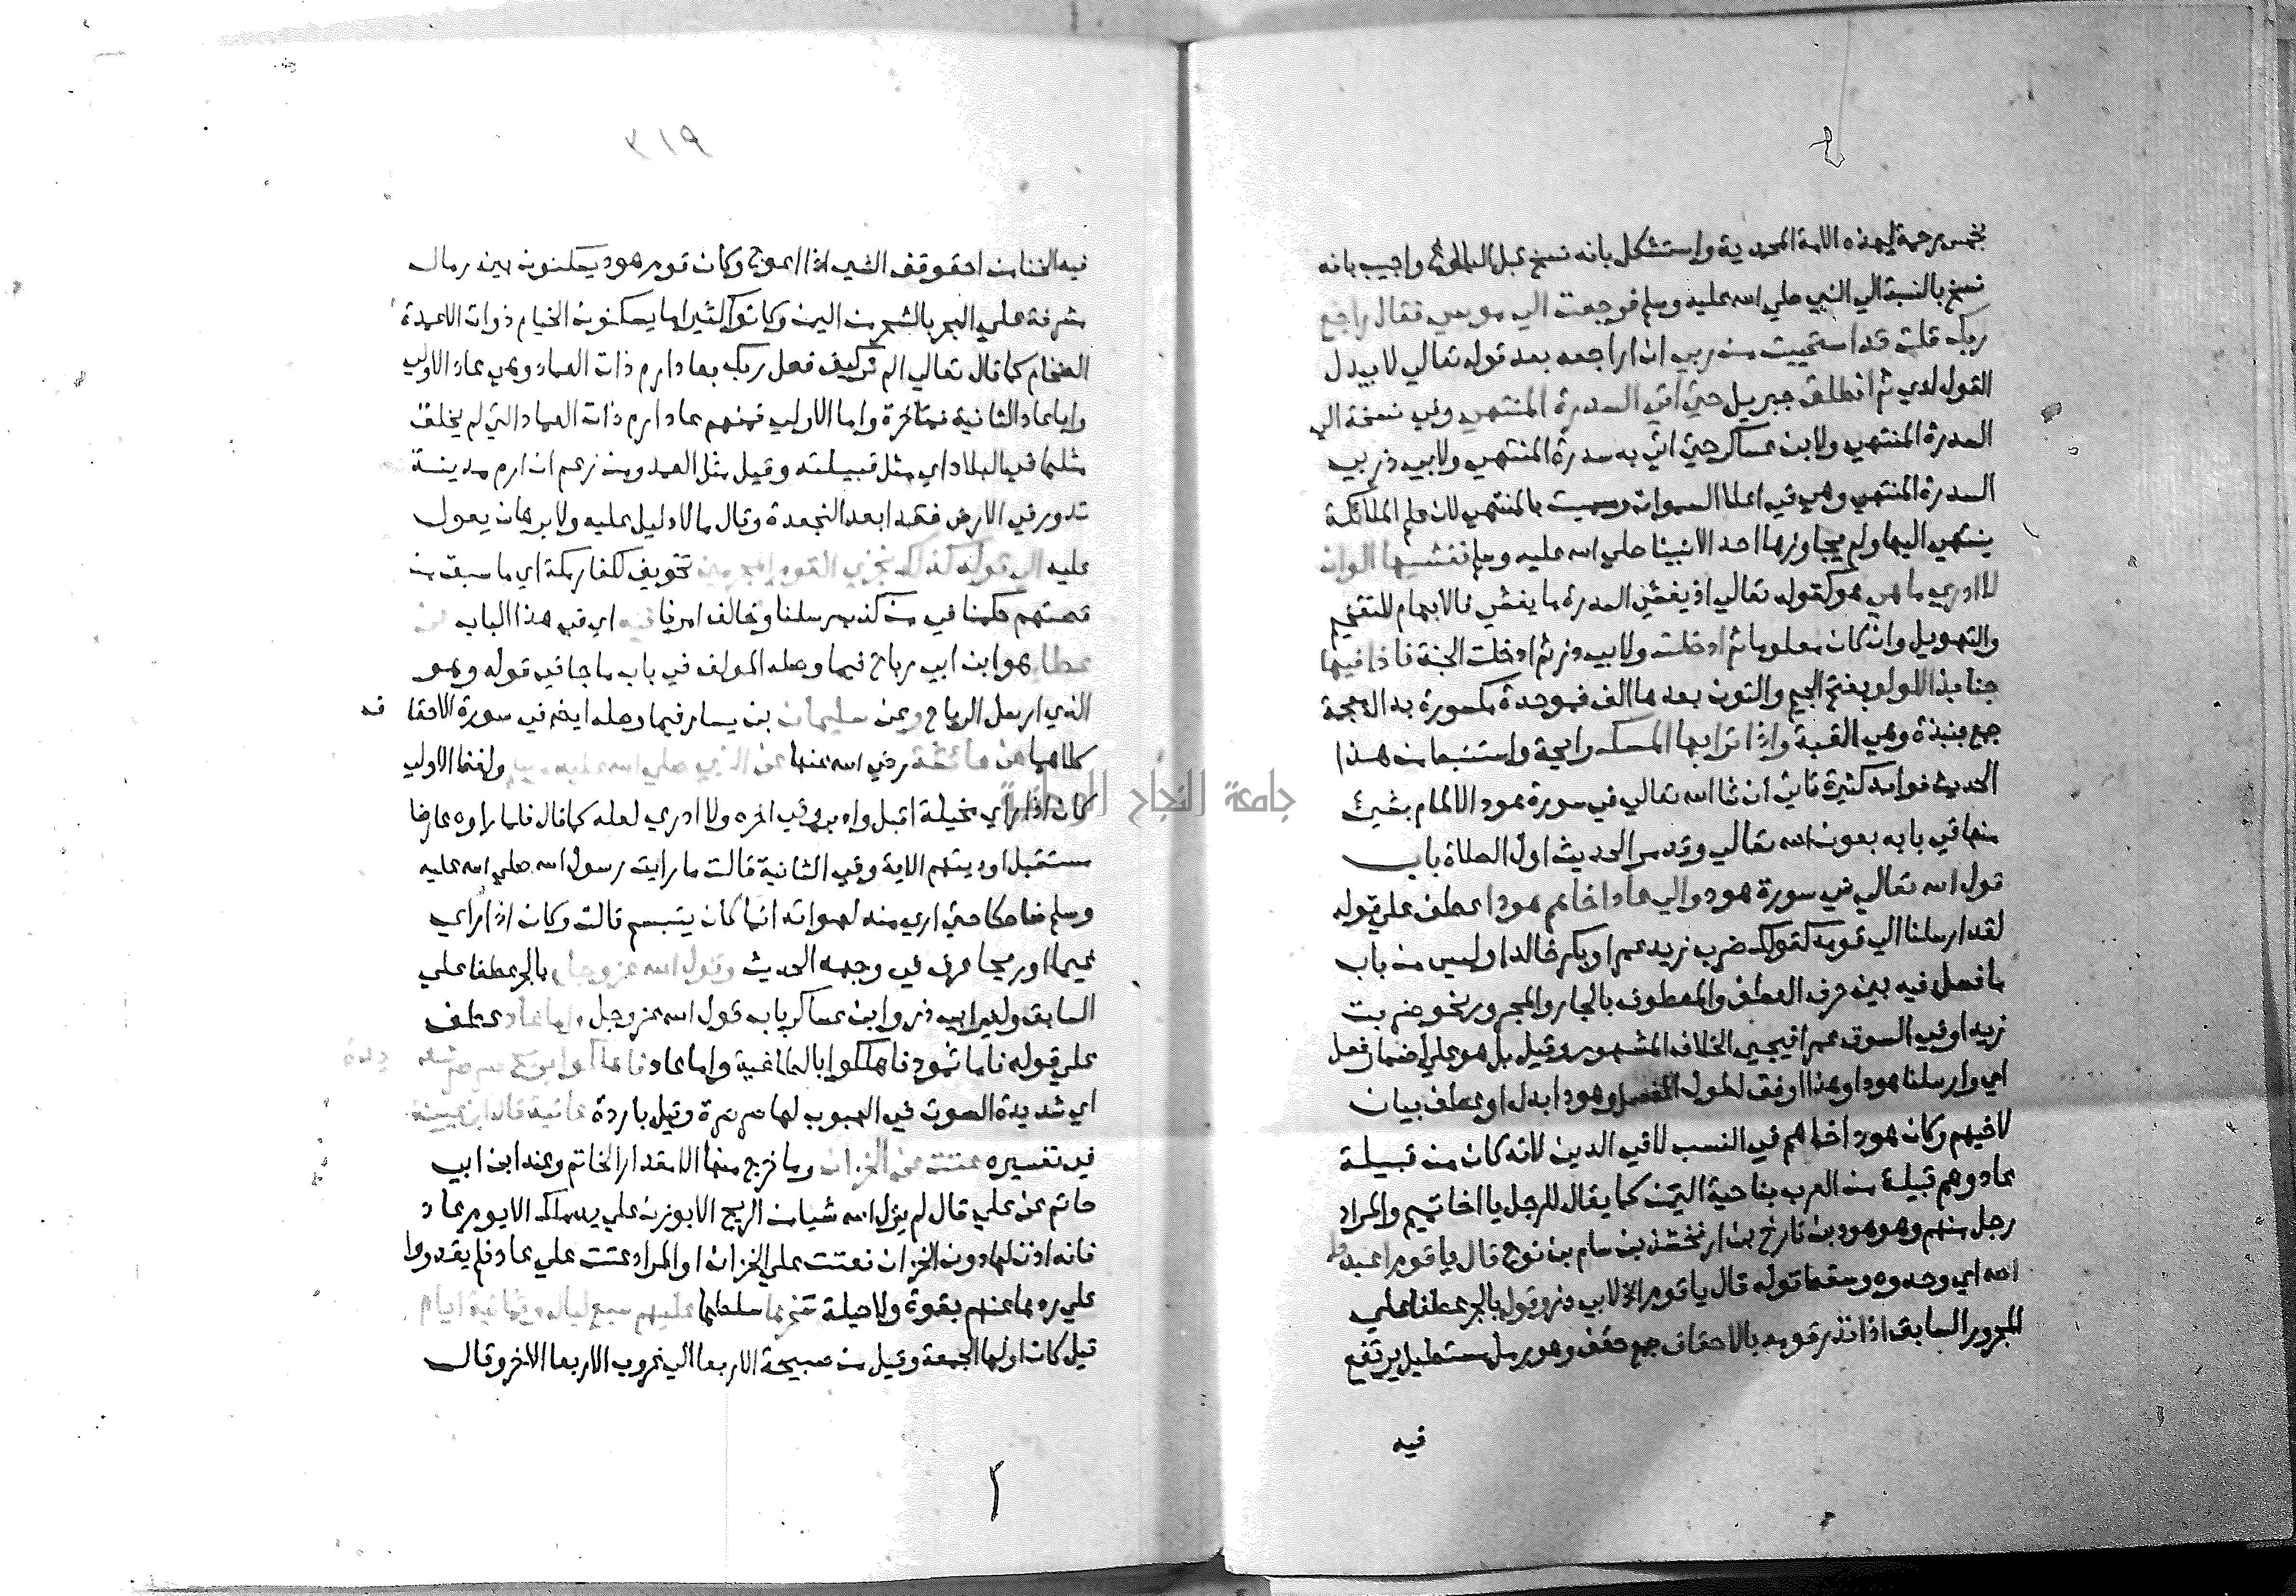 بخمس رحمة لهذه الامة المحمدية واستشكل بانه نسخ قبل البلاغ واجيب بانه
نسخ بالنسبة الي النبي صلي الله عليه وسلم فرجعت الي موسي فقال راجع
ربك قلت قد استحييت من ربي ان اراجعه بعد قوله تعالي لا يبدل
القول لدي ثم انطلق جبريل حتي اتي السدرة المنتهي وفي نسخة الي
السدرة المنتهي ولابن عساكر حتي اتي به سدرة المنتهي ولابي ذر بي
السدرة المنتهي وهي في اعلا السموات وسميت بالمنتهي لان علم الملائكة
ينتهي اليها ولم يجاوزها احد الا نبينا صلي الله عليه وسلم فغشيها الوان
لا ادري ما هي هو كقوله تعالي اذ يغشي السدرة ما يغشي فالابهام للتفخيم
والتهويل وان كان معلوما ثم ادخلت ولابي ذر ثم ادخلت الجنة فاذا فيها
جنابذ اللولو بفتح الجيم والنون بعدها الف فموحدة مكسورة بد المعجمة
جمع جنبذة وهي القبة واذا ترابها المسك رايحة واستنبط من هذا
الحديث فوايد كثيرة تاتي ان شا الله تعالي في سورة هود الالمام بشيئ
منها في بابه بعون الله تعالي وقد مر الحديث اول الصلاة باب
قول الله تعالي في سورة هود والي عاد اخاهم هودا عطف علي قوله
لقد ارسلنا الي قومه كقولك ضرب زيد عمرا وبكر خالدا وليس من باب
ما فصل فيه بين حرف العطف والمعطوف بالجار والمجرور نحو ضربت
زيدا وفي السوق عمرا فيجيئ الخلاف المشهور وقيل بل هو علي اضمار فعل
اي وارسلنا هودا وهذا اوفق لطول الفصل وهودا بدل او عطف بيان
لاخيهم وكان هود اخاهم في النسب لا في الدين لانه كان من قبيلة
عاد وهم قبيلة من العرب بناحية اليمن كما يقال للرجل يا اخا تميم والمراد
رجل منهم وهو هود بن تارخ بن ارفخشذ بن سام بن نوح قال يا قوم اعبدوا
الله اي وحدوه وسقط قوله قال يا قوم الخ لابي ذر وقوله بالجر عطفا علي
المجرور السابق اذ انذر قومه بالاحقاف جمع حقف وهو رمل مستطيل يرتفع
فيه
٣١٩
فيه انحنا من احقوقف الشي اذا اعوج وكان قوم هود يسكنون بين رمال
مشرفة علي البحر بالشحر من اليمن وكانوا كثيرا ما يسكنون الخيام ذوات الاعمدة
الضخام كما قال تعالي الم تر كيف فعل ربك بعاد ارم ذات العماد وهي عاد الاولي
واما عاد الثانية فمتاخرة واما الاولي فمنهم عاد ارم ذات العماد التي لم يخلق
مثلها في البلاد اي مثل قبيلته وقيل مثل العمد ومن زعم ان ارم مدينة
تدور في الارض فقد ابعد النجعة وقال ما لا دليل عليه ولا برهان يعول
عليه الي قوله كذلك نجزي القوم المجرمين تخويف لكفار مكة اي ما سبق من
قصتهم حكمنا في من كذب رسلنا وخالف امرنا فيه اي في هذا الباب عن
عطا هو ابن ابي رباح فيما وصله المولف في باب ما جا في قوله وهو
الذي ارسل الرياح وعن سليمان بن يسار فيما وصله ايضا في سورة الاحقا ف
كلاهما عن عائشة رضي الله عنها عن النبي صلي الله عليه وسلم ولفظ الاولي
كان اذا راي مخيلة اقبل وادبر وفي اخره ولا ادري لعله كما قال فلما راوه عارضا
مستقبل اوديتهم الاية وفي الثانية قالت ما رايت رسول الله صلي الله عليه
وسلم ضاحكا حتي اري منه لهواته انما كان يتبسم قالت وكان اذا راي
غيما او ريحا عرف في وجهه الحديث وقول الله عز وجل بالجر عطفا علي
السابق ولغير ابي ذر وابن عساكر باب قول الله عز وجل واما عاد عطف
علي قوله فاما ثمود فاهلكوا بالطاغية واما عاد فاهلكوا بريح صرصر شديدة
اي شديدة الصوت في الهبوب لها صرصرة وقيل باردة عاتية قال ابن عيينة
في تفسيره عتت عن الخزان وما خرج منها الا مقدار الخاتم وعند ابن ابي
حاتم عن علي قال لم ينزل الله شيا من الريح الا بوزن علي يد ملك الا يوم عاد
فانه اذن لها دون الخزان فعتت علي الخزان او المراد عتت علي عاد فلم يقدروا
علي ردها عنهم بقوة ولا حيلة سخرها سلطها عليهم سبع ليال وثمانية ايام
قيل كان اولها الجمعة وقيل من صبيحة الاربعا الي غروب الاربعا الاخر وقال
جامعة النجاح الوطنية